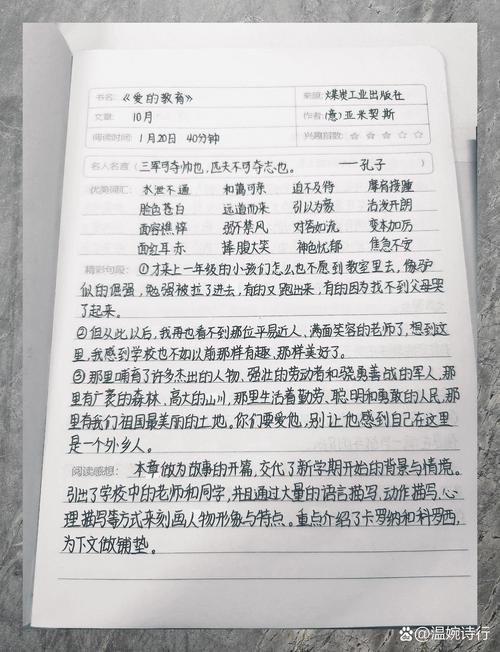 书名: 《爱的教育》 来源: 煤炭工业出版社
文章: 10月 作者: (意)亚米契斯
阅读时间: 1月20日 40分钟 兴趣指数: ☆ ☆ ☆ ☆ ☆
名人名言( 三军可夺帅也,匹夫不可夺志也。 ——孔子 )
优美词汇: 水泄不通 和蔼可亲 迫不及待 摩肩接踵
脸色苍白 远道而来 引以为豪 活泼开朗
面容憔悴 弱不禁风 对答如流 变本加厉
面红耳赤 捧腹大笑 神色忧郁 焦急不安
精彩句段: ①才来上一年级的小孩们怎么也不愿到教室里去,像驴
似的倔强,勉强被拉了进去,有的又跑出来,有的因为找不到父母哭
了起来。
②但从此以后,我再也看不到那位平易近人、满面笑容的老师了,想到这
里,我感到学校也不如以前那样有趣、那样美好了。
③那里哺育了许多杰出的人物、强壮的劳动者和骁勇善战的军人,那
里有广袤的森林、高大的山川,那里生活着勤劳、聪明和勇敢的人民,那
里有我们祖国最美丽的土地。你们要爱他,别让他感到自己在这里
是一个外乡人。
阅读感想: 本章做为故事的开篇,交代了新学期开始的背景与情境。
引出了学校中的老师和同学,并且通过大量的语言描写,动作描写,心
理描写等方式来刻画人物形象与特点。重点介绍了卡罗纳和科罗西,
为下文做铺垫。
百家号@温婉诗行